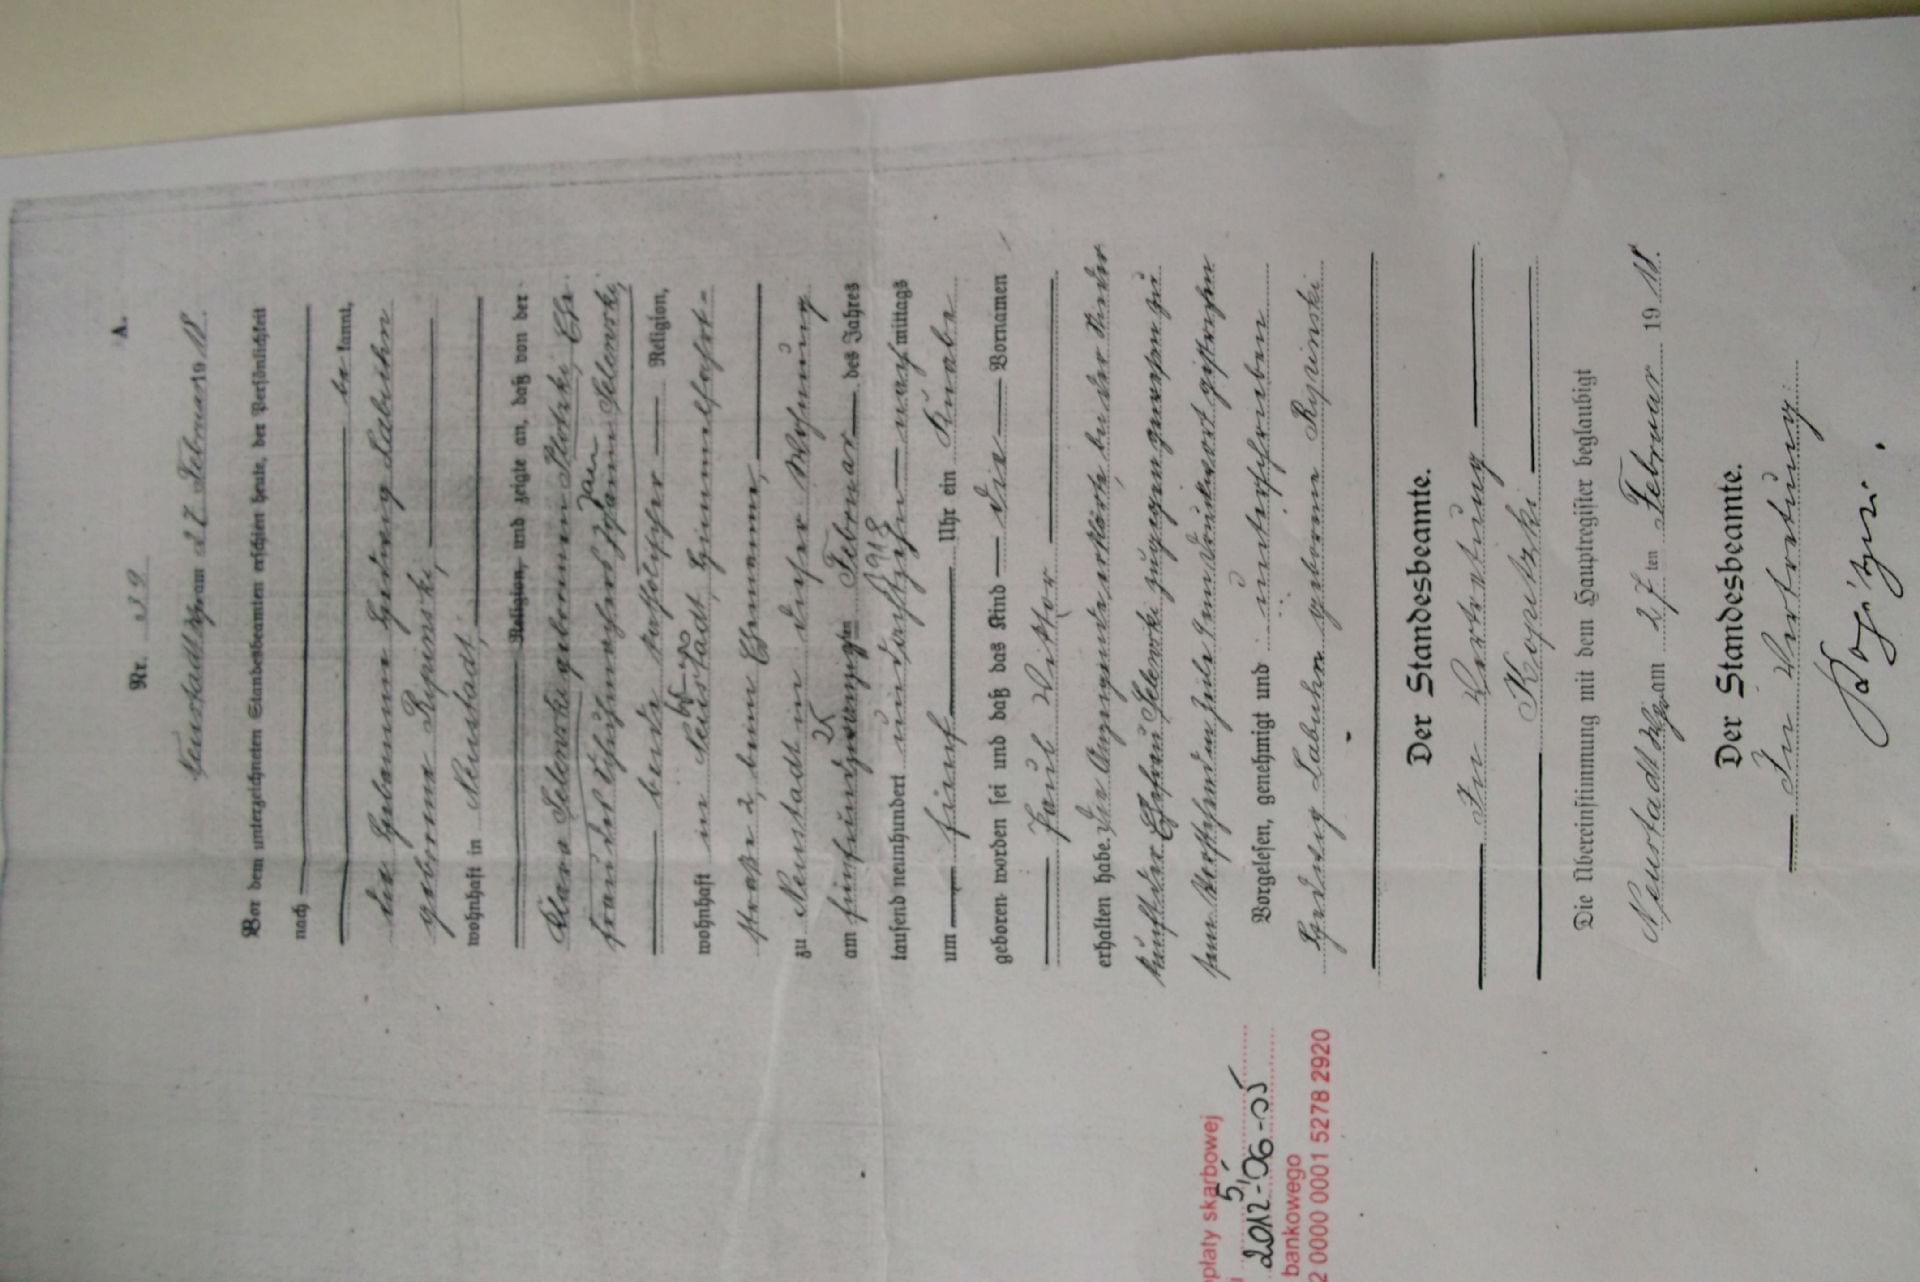 A.
Nr. 39
Neustadt Wpr. am 27. Februar 1918.
Vor dem unterzeichneten Standesbeamten erschien heute, der Persönlichkeit
nach
be kannt,
die Hebamme Hedwig Labuhn
geborene Rypinski,
wohnhaft in Neustadt,
Religion, und zeigte an, daß von der
Clara Selewski geborenen Plotzki, Ehe-
frau des Johann Selewski,
Jan
beide katholischer Religion,
wohnhaft in Neustadt, Himmelfahrt-
straße 2, beim Ehemanne,
zu Neustadt in dieser Wohnung
am fünfundzwanzigsten Februar des Jahres
25 1918
tausend neunhundert und achtzehn nachmittags
um fünf Uhr ein Knabe
geboren worden sei und daß das Kind die Vornamen
Paul Viktor
erhalten habe. Die Anzeigende erklärte, bei der Nieder-
kunft der Ehefrau Selewski zugegen gewesen zu
sein. Vorstehend ein Druckwort gestrichen
Vorgelesen, genehmigt und unterschrieben
Hedwig Labuhn geborene Rypinski
Der Standesbeamte.
In Vertretung
Kopitzki
Die Übereinstimmung mit dem Hauptregister beglaubigt
Neustadt Wpr. am 27 ten Februar 1918.
Der Standesbeamte.
In Vertretung
opłaty skarbowej
5,
2012-06-
bankowego
2 0000 0001 5278 2920